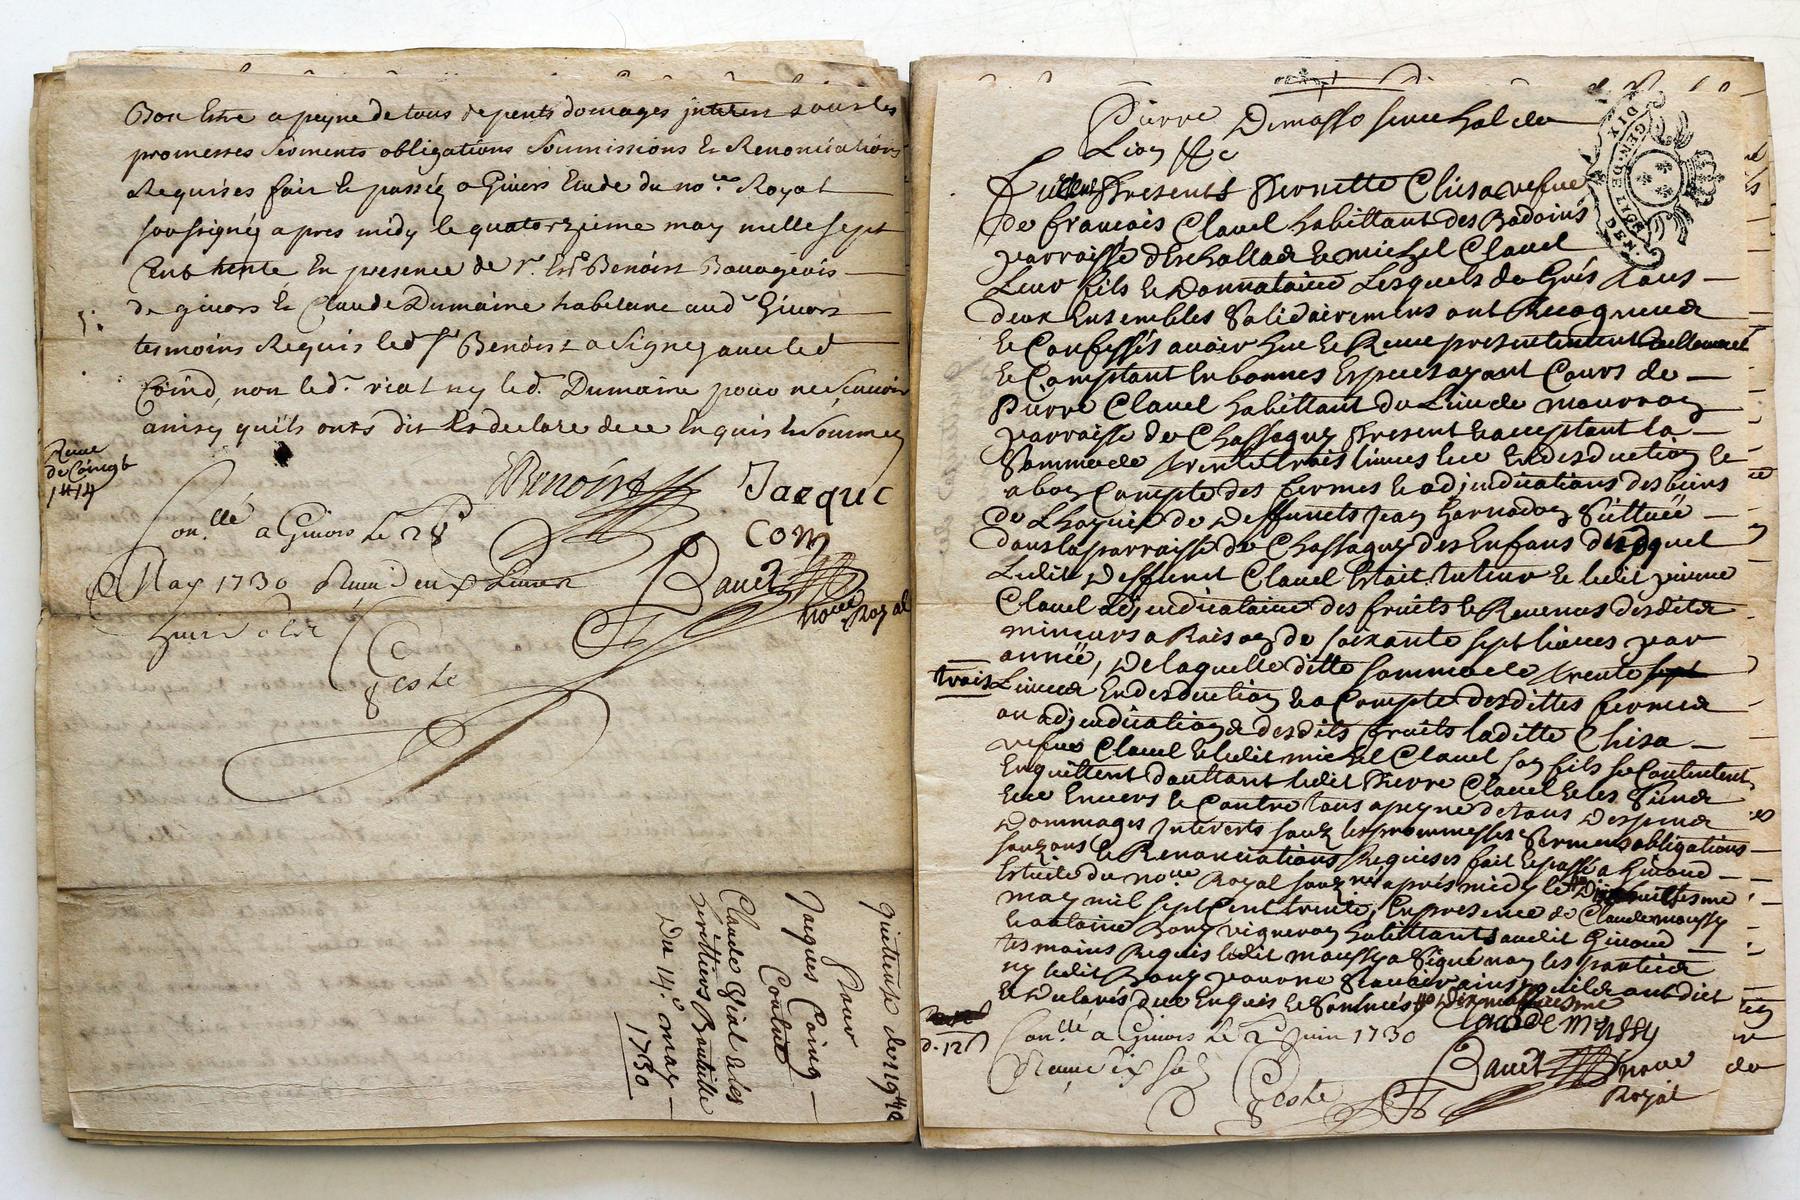 Bon Estre a peyne de tous depents domages interest sous les
promesses serments obligations soumissions & Renonciations
Requises fait & passéz a Givors Etude du no.re Royal
soussigné apres midy le quatorzieme may mille sept
Cent trente En presence de Benoist Bourgeois
de givors & Claude Dumaine habitant aud Givors
tesmoins Requis led Sr Benoist a signé avec led
Coind, non led. viat ny led. Dumaine pour ne scavoir
ainsy quils onts dit & declare de ce Enquis & sommez
Benoist Jacque
Con.llé a Givors Le 28
May 1730
Bauet
noue Royal
Ceste
quittense de
pour
Jaques Coind
Contre
Claude Viat & les
herittiers
Du 14.e may
1730
GEN. DE LION
Pierre Demasso senechal de
Lion &c
furent Presents Pernette Chisa vefue
de francois Clauel habittant des Badoins
parroisse d'Eschallas & michel Clauel
Leur fils & Donnataire Lesquels de Grés tous
deux Ensembles Solidairement ont Recogneus
& Confessés avoir heu & Receu presentement Reellement
& Comptant En bonnes Especes ayant Cours de
Pierre Clauel habittant du Lieu de
parroisse de Chassagny Present & acceptant la
Somme de trente trois liures Et ce En desduction &
a bon Compte des fermes & adjudications des biens
de Lhoyrie de deffunets Jean Situëe
dans la parroisse de Chassagny des Enfans duquel
Ledit deffunt Clauel Estoit tuteur & ledit pierre
Clauel adjudicataire des fruits & Revenus desdits
mineurs a Raison de soixante sept liures par
année, de laquelle ditte somme de trente sept
trois Liures En desduction & a Compte desdittes fermes
ou adjudications desdits fruits laditte Chisa
vefue Clauel & ledit michel Clauel son fils se Contentent
Enquittent d'autant ledit Pierre Clauel & les Siens
Et ce Enuers & Contre tous a peyne de tous despens
Dommages Interests souz les prommesses Serments obligations
& Renonciations Requises fait & passé a Givord
Estude du no.re Royal souz.né apres midy le
may mil sept Cent trente, En presence de Claude moussy
& antoine vigneron habittants audit Givord
tesmoins Requis ledit moussy a Signé non les parties
ny ledit pour ne scavoir ainsy quils ont dict
& declarés de ce Enquis & Sommés
d. 12
Con.llé a Givors Le 2 Juin 1730
Receu dix sols
Bauet noue
Royal
Ceste